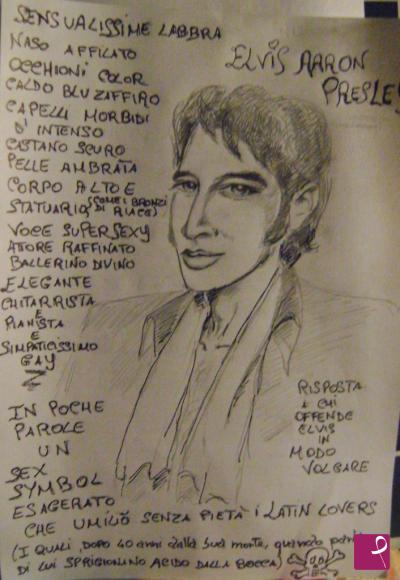 SENSUALISSIME LABBRA
NASO AFFILATO
OCCHIONI COLOR
CALDO BLU ZAFFIRO
CAPELLI MORBIDI
D'INTENSO
CASTANO SCURO
PELLE AMBRATA
CORPO ALTO E
STATUARIO (COME I BRONZI DI RIACE)
VOCE SUPERSEXY
ATORE RAFFINATO
BALLERINO DIVINO
ELEGANTE
CHITARRISTA
E
PIANISTA
E
SIMPATICISSIMO
GAY
ELVIS AARON
PRESLEY
IN POCHE
PAROLE
UN
SEX
SYMBOL
ESAGERATO
CHE UMILIÒ SENZA PIETÀ I LATIN LOVERS
(I QUALI, DOPO 40 ANNI DALLA SUA MORTE, QUANDO
DI LUI SPRIGIONANO ACIDO DALLA BOCCA)
RISPOSTA
A CHI
OFFENDE
ELVIS
IN
MODO
VOLGARE